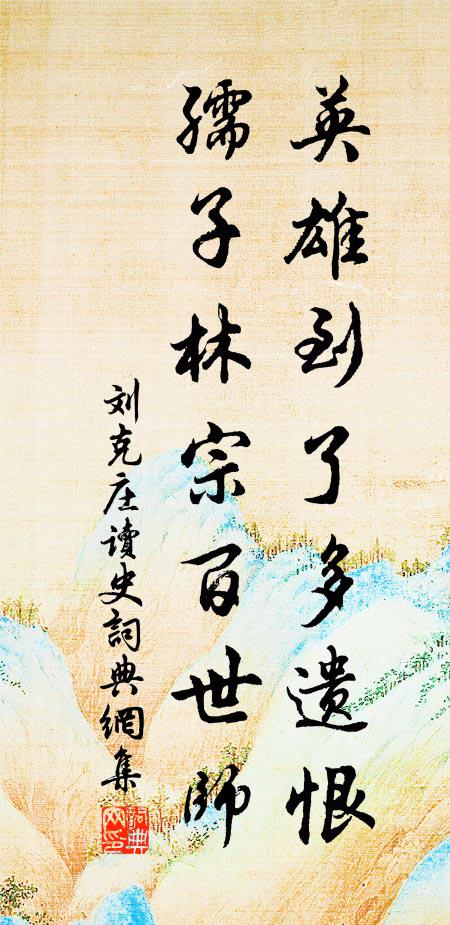 英雄到了多遺恨
孺子林宗百世師
刘克庄讀史詞典網集